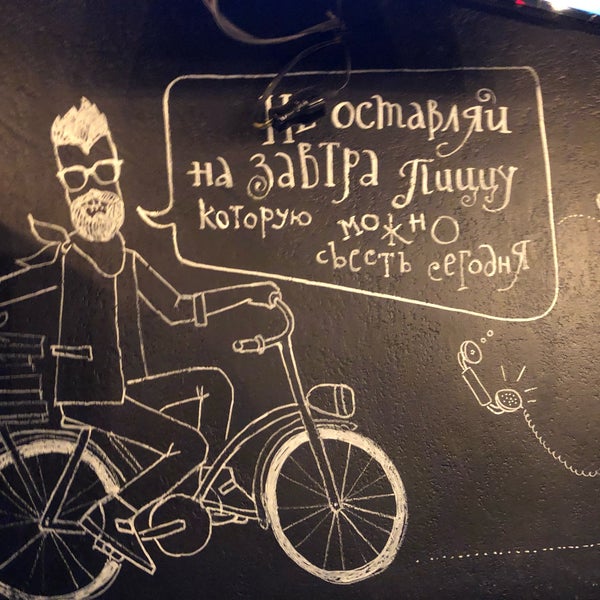 Не оставляй
на завтра пиццу
которую можно
съесть сегодня